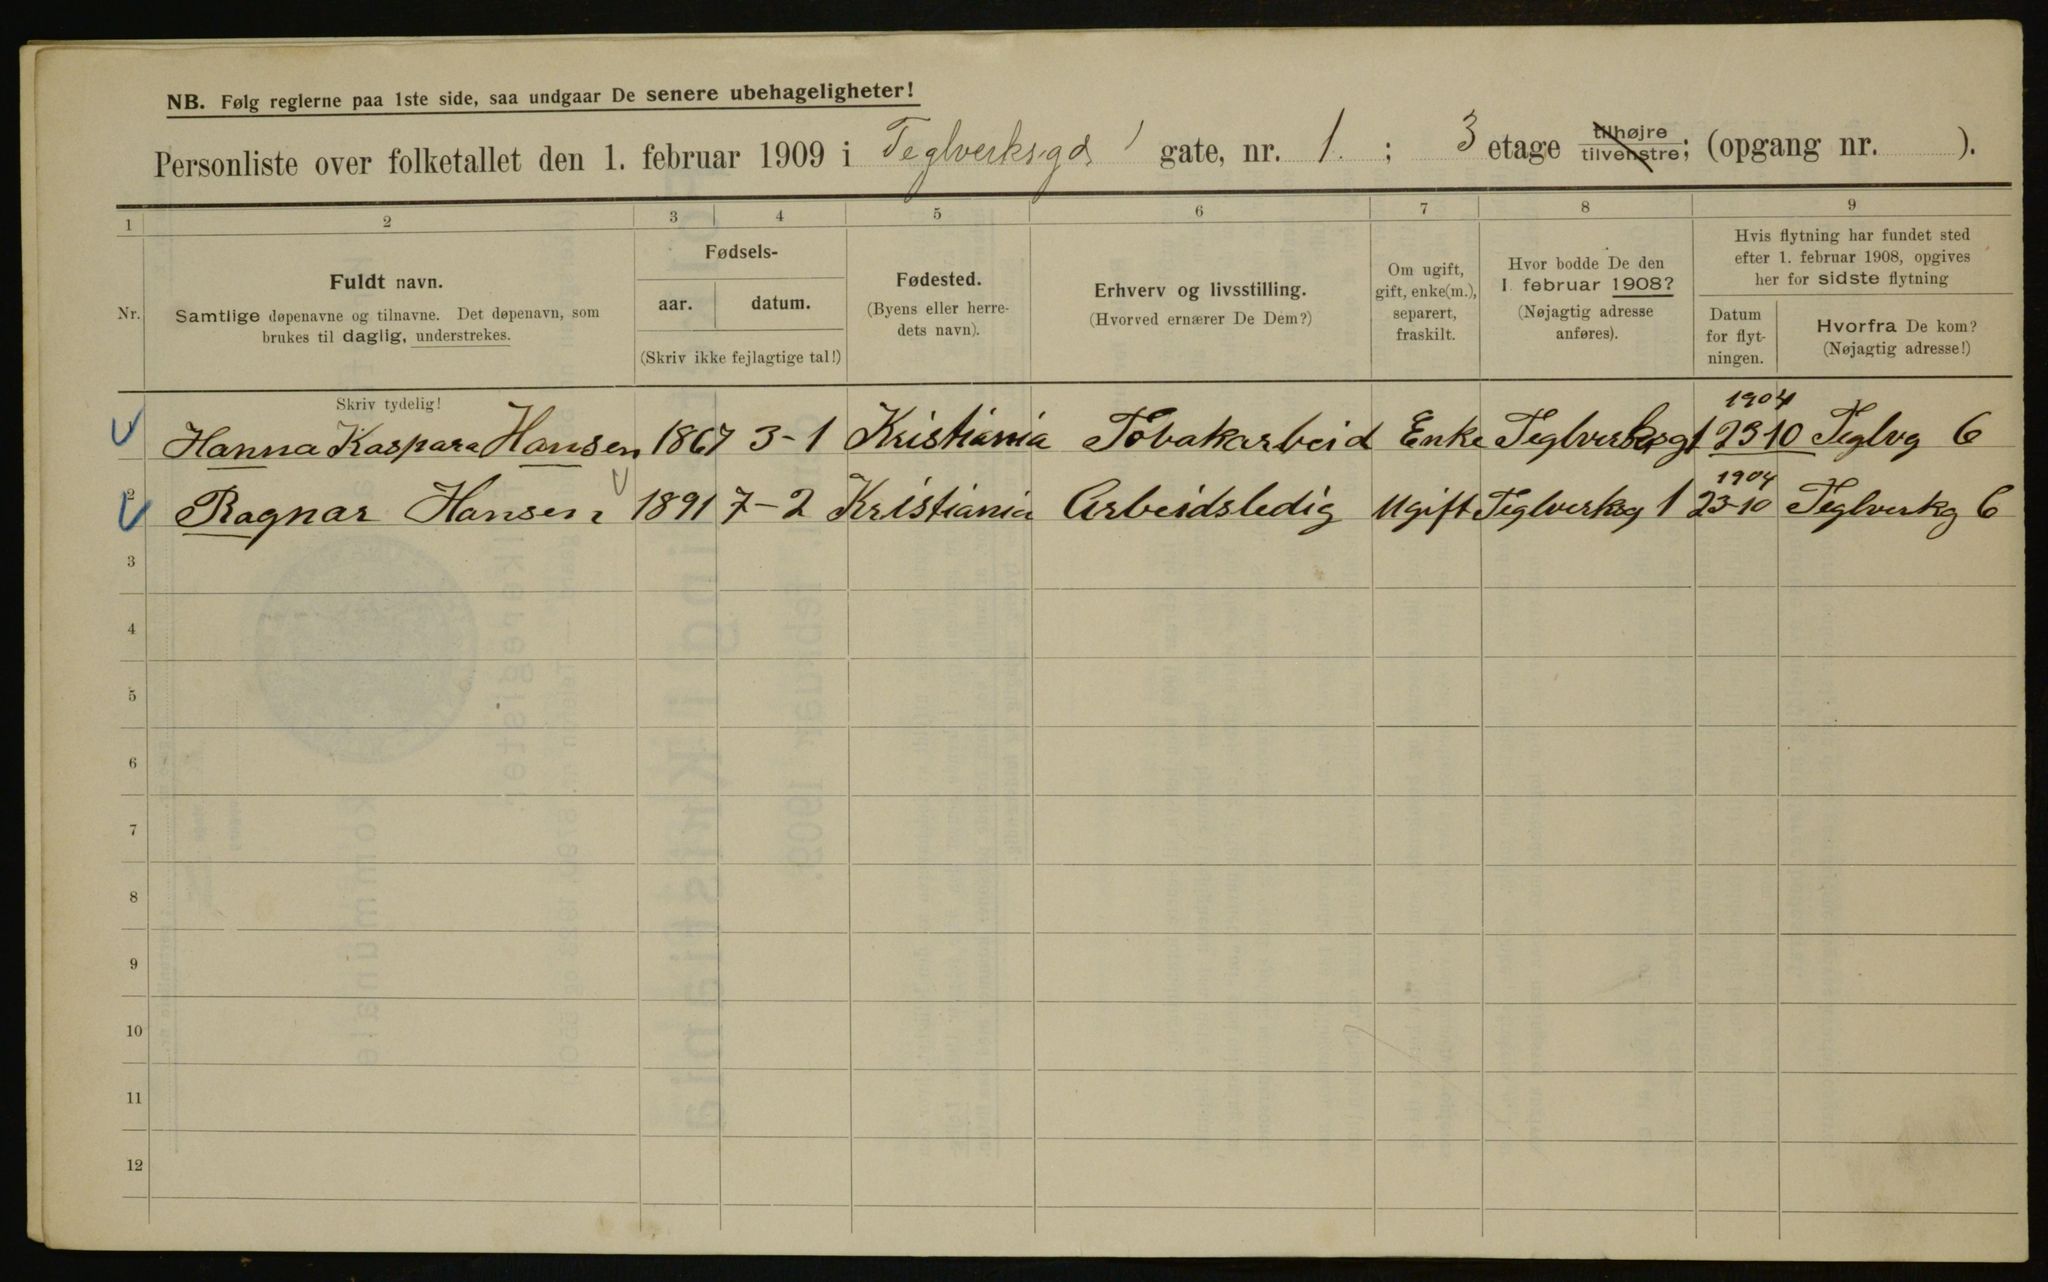 NB. Følg reglerne paa 1ste side, saa undgaar De senere ubehageligheter!
Personliste over folketallet den 1. februar 1909 i Teglverksgd 1 gate, nr. 1. ; 3 etage tilhøjre tilvenstre; (opgang nr. ).
1 2 3 4 5 6 7 8 9
Nr.
Fuldt navn.
Samtlige døpenavne og tilnavne. Det døpenavn, som
brukes til daglig, understrekes.
Fødsels-
aar. datum.
(Skriv ikke fejlagtige tal!)
Fødested.
(Byens eller herre-
dets navn).
Erhverv og livsstilling.
(Hvorved ernærer De Dem?)
Om ugift,
gift, enke(m.),
separert,
fraskilt.
Hvor bodde De den
1. februar 1908?
(Nøjagtig adresse
anføres).
Hvis flytning har fundet sted
efter 1. februar 1908, opgives
her for sidste flytning
Datum
for flyt-
ningen.
Hvorfra De kom?
(Nøjagtig adresse!)
Skriv tydelig!
1904
Hanna Kaspara Hansen 1867 3-1 Kristiania Tobakarbeid Enke Teglverksgt 23 10 Teglvg 6
1904
2 Ragnar Hansen 1891 7-2 Kristiania Arbeidsledig Ugift Teglverksg 1 23-10 Teglverkg 6
3
4
5
6
7
8
9
10
11
12